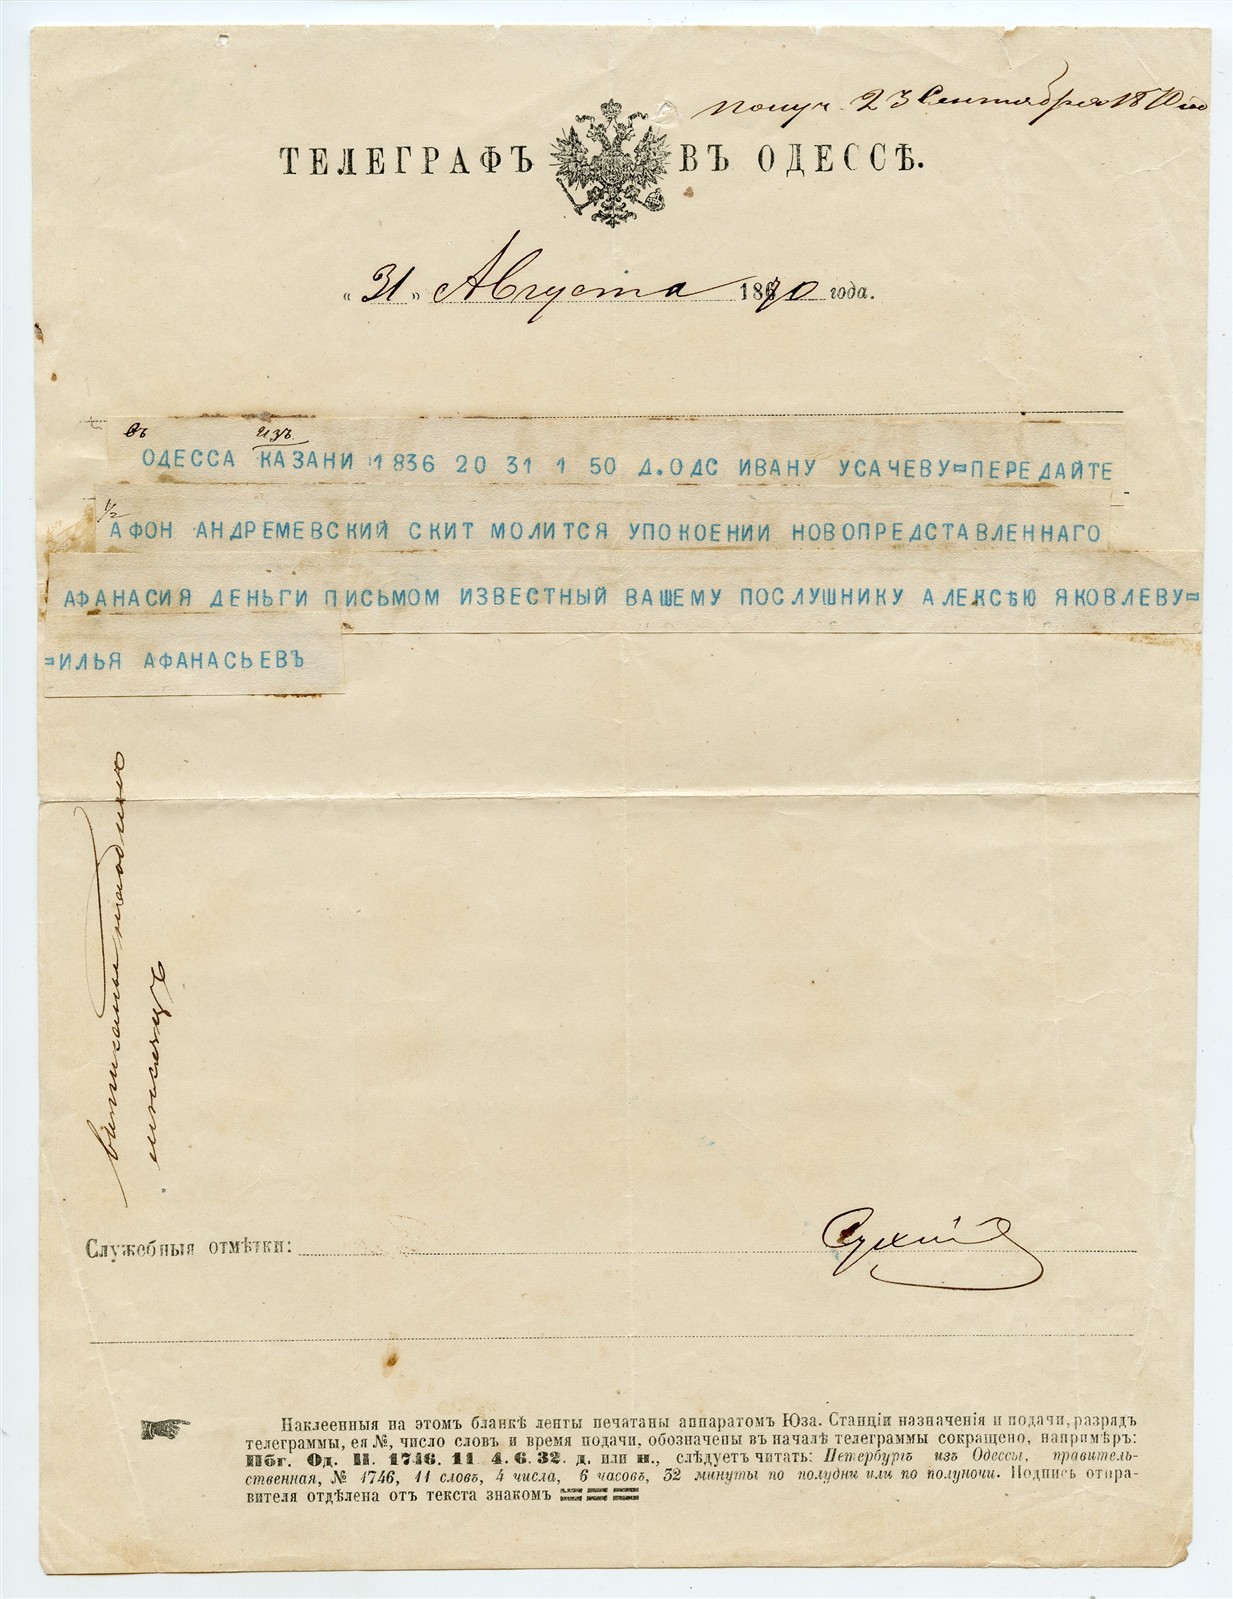 получ. 23 Сентября 1870го
ТЕЛЕГРАФЪ ВЪ ОДЕССѢ.
„31„ Августа 1870 года.
въ изъ
ОДЕССА КАЗАНИ 1836 20 31 1 50 Д.ОДС ИВАНУ УСАЧЕВУ=ПЕРЕДАЙТЕ
АФОН АНДРЕМЕВСКИЙ СКИТ МОЛИТСЯ УПОКОЕНИИ НОВОПРЕДСТАВЛЕННАГО
АФАНАСИЯ ДЕНЬГИ ПИСЬМОМ ИЗВЕСТНЫЙ ВАШЕМУ ПОСЛУШНИКУ АЛЕКСѢЮ ЯКОВЛЕВУ=
=ИЛЬЯ АФАНАСЬЕВЪ
Служебныя отмѣтки: Сухій
Наклеенныя на этомъ бланкѣ ленты печатаны аппаратомъ Юза. Станціи назначенія и подачи, разрядъ
телеграммы, ея №, число словъ и время подачи, обозначены въ началѣ телеграммы сокращено, напримѣръ:
Пбг. Од. П. 1746. 11 4. 6. 32. д. или н., слѣдуетъ читать: Петербургъ изъ Одессы, правитель-
ственная, № 1746, 11 словъ, 4 числа, 6 часовъ, 32 минуты по полудни или по полуночи. Подпись отпра-
вителя отдѣлена отъ текста знакомъ === === ===